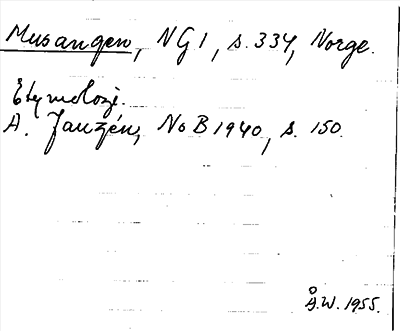 Musangen, NG 1, s. 334, Norge.
Etymologi.
A. Janzén, NoB 1940, s. 150.
Å.W. 1955.